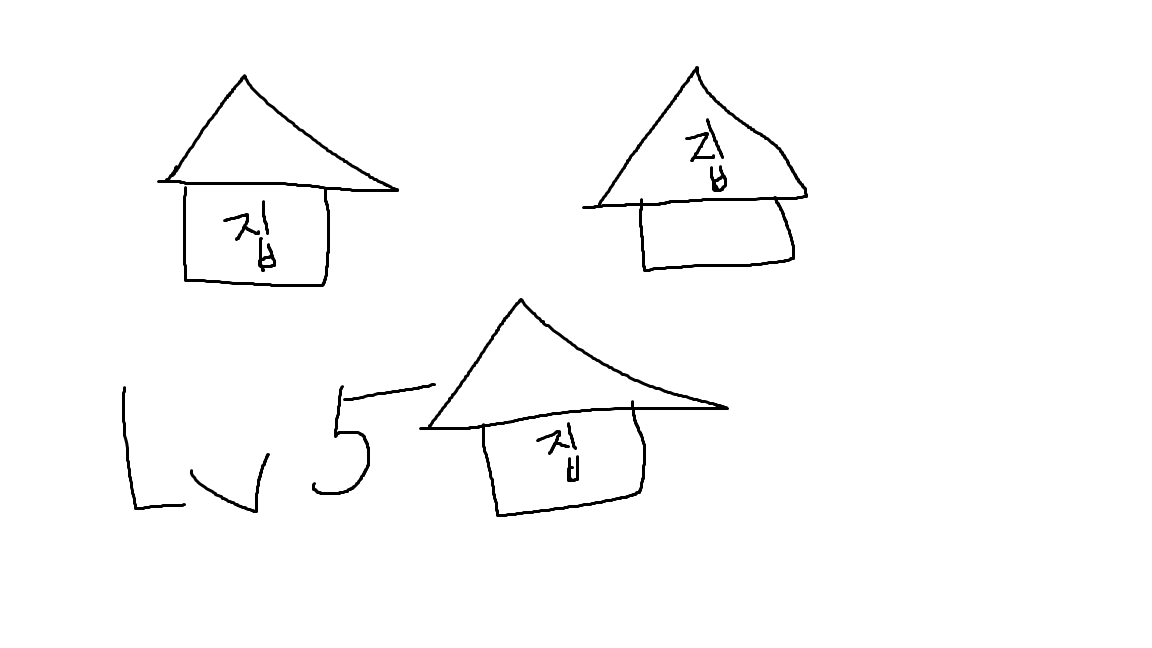 집
집
Lv 5
집